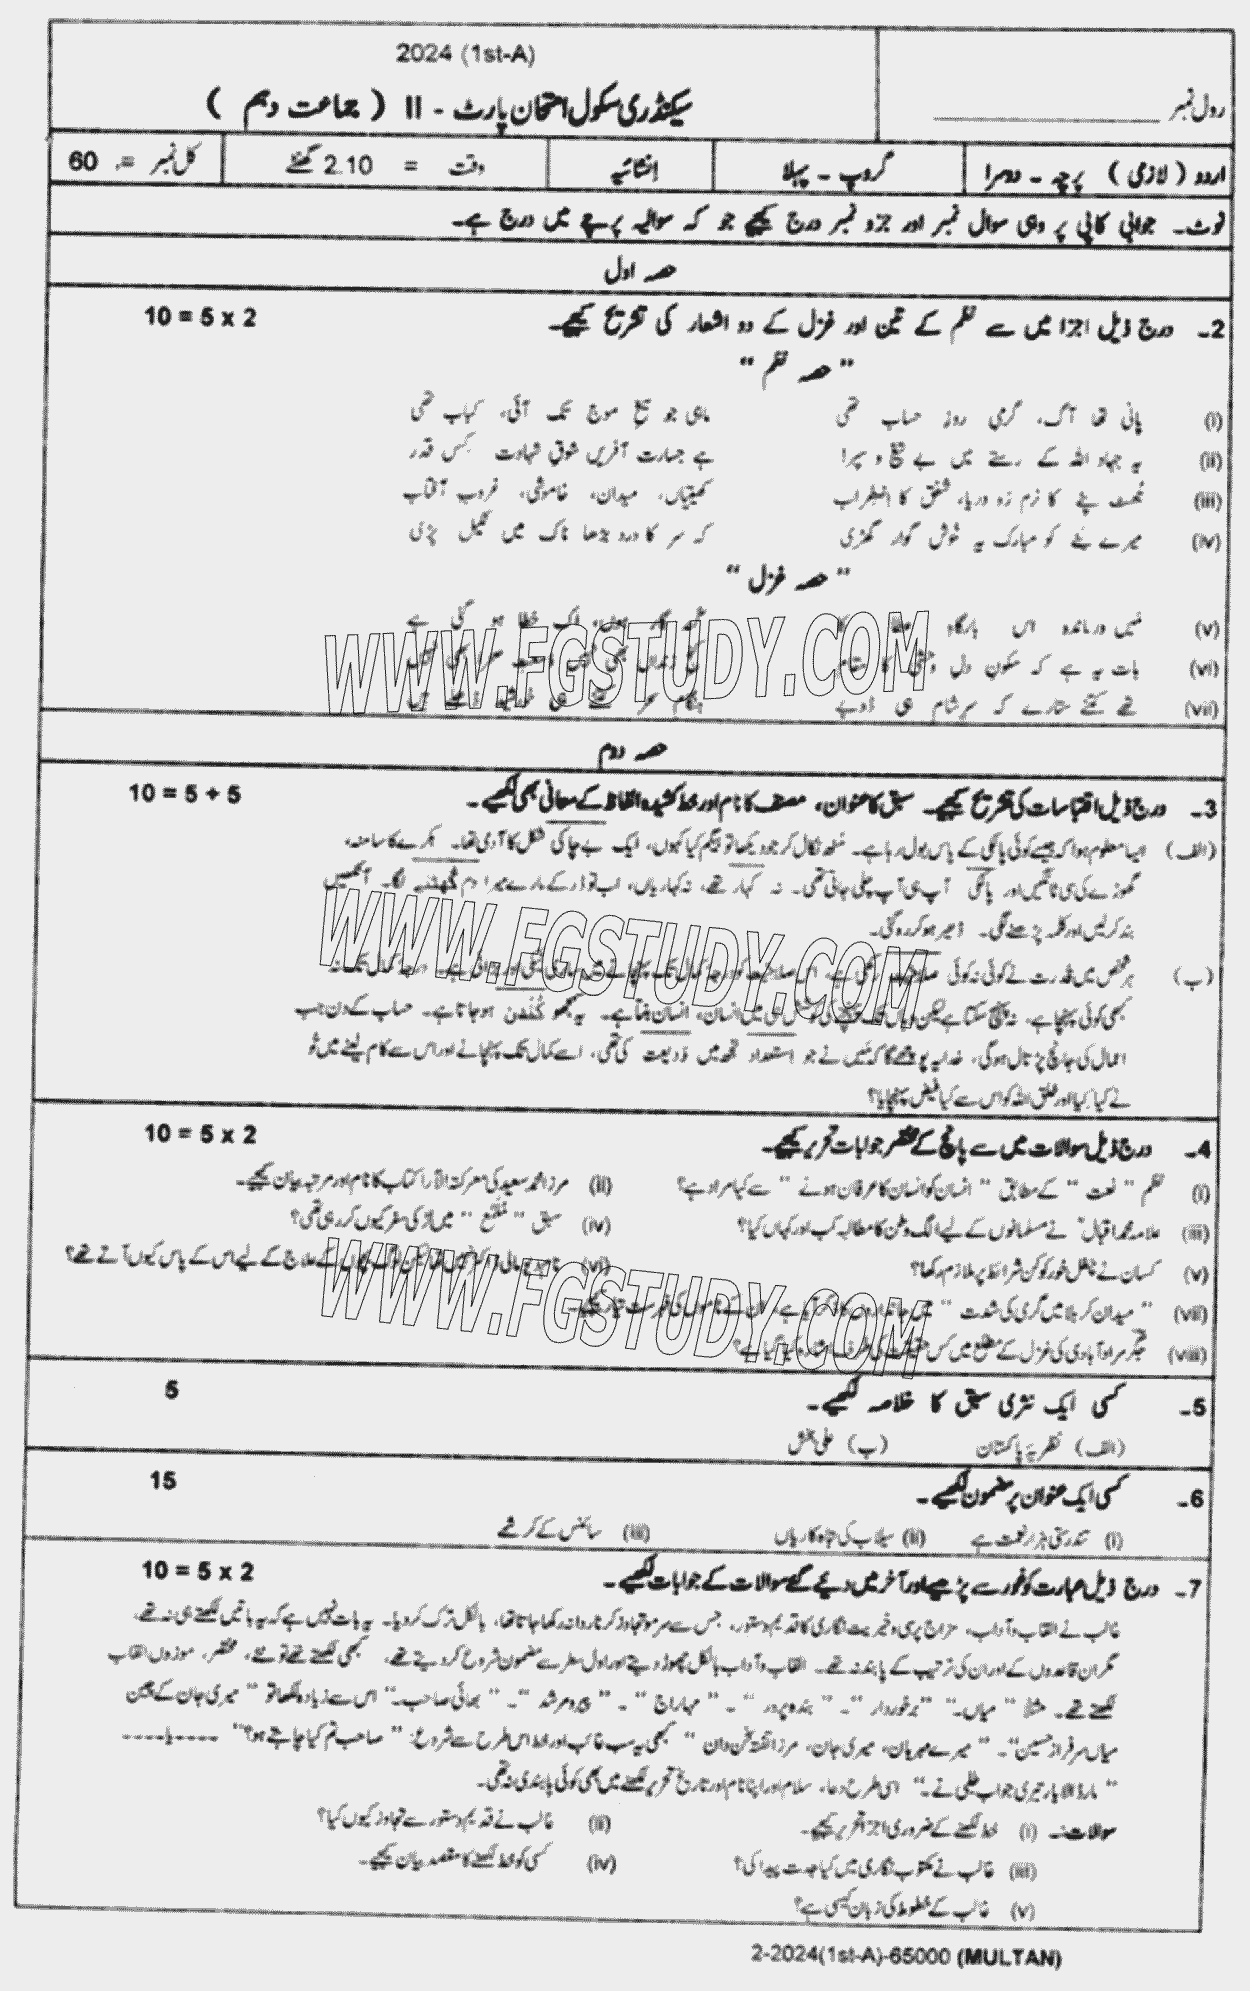 2024 (1st-A)
رول نمبر
سیکنڈری سکول امتحان پارٹ - II ( جماعت دہم )
اردو ( لازمی ) پرچہ - دوسرا گروپ - پہلا انشائیہ وقت = 2.10 گھنٹے کل نمبر = 60
نوٹ۔ جوابی کاپی پر وہی سوال نمبر اور جزو نمبر درج کیجیے جو کہ سوالیہ پرچے میں درج ہے۔
حصہ اول
2۔ درج ذیل اجزا میں سے نظم کے تین اور غزل کے دو اشعار کی تشریح کیجیے۔ 10 = 5 x 2
" حصہ نظم "
(i) پانی تھا آگ، گرمی روز حساب تھی ماہی جو سیخ موج تک آئی، کباب تھی
(ii) یہ جہاد اللہ کے رستے میں بے تیغ و سپر! ہے جسارت آفریں شوقِ شہادت کس قدر
(iii) جھٹ پٹے کا نرم رَو دریا، شفق کا اضطراب کھیتیاں، میدان، خاموشی، غروب آفتاب
(iv) میرے بنے کو مبارک یہ خوش گوار گھڑی کہ سر کا درد بڑھا ناک میں نکیل پڑی
" حصہ غزل "
(v) میں درماندہ اس بارگاہ خطا ہو گئی ہے
(vi) بات یہ ہے کہ سکون دل وحشی کا مقام
(vii) تھے کتنے ستارے کہ سرِشام ہی ڈوبے
حصہ دوم
3۔ درج ذیل اقتباسات کی تشریح کیجیے۔ سبق کا عنوان، مصنف کا نام اور خط کشیدہ الفاظ کے معانی بھی لکھیے۔ 10 = 5 + 5
(الف) ایسا معلوم ہوا کہ جیسے کوئی پالکی کے پاس بول رہا ہے۔ منھ نکال کر جو دیکھا تو بیگم کیا کہوں، ایک بے چاکی شکل کا آدمی تھا۔ بکرے کا سا منہ،
گھوڑے کی سی ٹانگیں اور پالکی آپ ہی آپ چلی جاتی تھی۔ نہ کہار تھے، نہ کہاریاں، اب تو ڈر کے مارے میرا دم گھٹنے لگا۔ آنکھیں
بند کر لیں اور کلمہ پڑھنے لگی۔ ڈھیر ہو کر رہ گئی۔
(ب) ہر شخص میں قدرت نے کوئی نہ کوئی صلاحیت رکھی ہے۔ اس صلاحیت کو درجہ کمال تک پہنچانے
کبھی کوئی پہنچا ہے، نہ پہنچ سکتا ہے لیکن وہاں تک پہنچنے کی کوشش ہی میں انسان، انسان بنتا ہے۔ یہ سمجھو کُندن ہو جاتا ہے۔ حساب کے دن جب
اعمال کی جانچ پڑتال ہو گی، خدا یہ پوچھے گا کہ میں نے جو استعداد تجھ میں ودیعت کی تھی، اسے کمال تک پہنچانے اور اس سے کام لینے میں تُو
نے کیا کِیا اور خلق اللہ کو اس سے کیا فیض پہنچایا؟
4۔ درج ذیل سوالات میں سے پانچ کے مختصر جوابات تحریر کیجیے۔ 10 = 5 x 2
(i) نظم " نعت " کے مطابق " انسان کو انسان کا عرفان ہونے " سے کیا مراد ہے؟ (ii) مرزا محمد سعید کی معرکۃ الآرا کتاب کا نام اور مرتبہ بیان کیجیے۔
(iii) علامہ محمد اقبالؒ نے مسلمانوں کے لیے الگ وطن کا مطالبہ کب اور کہاں کیا؟ (iv) سبق " مُلمّع " میں لڑکی سفر کیوں کر رہی تھی؟
(v) کسان نے چغل خور کو کن شرائط پر ملازم رکھا؟ (vi) کے علاج کے لیے اس کے پاس کیوں آتے تھے؟
(vii) " میدان کربلا میں گرمی کی شدت " میں جن جانداروں کا ذکر آیا ہے، ان کے ناموں کی فہرست تیار کیجیے۔
(viii) جگر مراد آبادی کی غزل کے مطلع میں کس حقیقت کی طرف اشارہ کیا گیا ہے؟
5۔ کسی ایک نثری سبق کا خلاصہ لکھیے۔ 5
(الف) نظریۂ پاکستان (ب) علی بخش
6۔ کسی ایک عنوان پر مضمون لکھیے۔ 15
(i) تندرستی ہزار نعمت ہے (ii) سیلاب کی تباہ کاریاں (iii) سائنس کے کرشمے
7۔ درج ذیل عبارت کو غور سے پڑھیے اور آخر میں دیے گئے سوالات کے جوابات لکھیے۔ 10 = 5 x 2
غالب نے القاب و آداب، مزاج پرسی و خیریت نگاری کا قدیم دستور، جس سے سرمو تجاوز کرنا روا نہ رکھا جاتا تھا، بالکل ترک کر دیا۔ یہ بات نہیں ہے کہ یہ باتیں لکھتے ہی نہ تھے،
مگر ان قاعدوں کے اور ان کی ترتیب کے پابند نہ تھے۔ القاب و آداب بالکل چھوڑ دیتے اور اول سطر سے مضمون شروع کر دیتے تھے، کبھی لکھتے تھے تو نئے، مختصر، موزوں القاب
لکھتے تھے۔ مثلاً " میاں۔" "برخوردار "۔" بندہ پرور "۔ " مہاراج "۔ " پیر و مرشد "۔ " بھائی صاحب۔" اس سے زیادہ لکھا تو " میری جان کے چین
میاں سرفراز حسین"۔ " میرے مہربان، میری جان، مرزا تفتہ سخن دان " کبھی یہ سب غائب اور خط اس طرح سے شروع: " صاحب تم کیا چاہتے ہو؟" ----یا----
" مار ڈالا یار تیری جواب طلبی نے۔" اسی طرح دعا، سلام اور اپنا نام اور تاریخ تحریر لکھنے میں بھی کوئی پابندی نہ تھی۔
سوالات:۔ (i) خط لکھنے کے ضروری اجزا تحریر کیجیے۔ (ii) غالب نے قدیم دستور سے تجاوز کیوں کیا؟
(iii) غالب نے مکتوب نگاری میں کیا جدت پیدا کی؟ (iv) کسی کو خط لکھنے کا مقصد بیان کیجیے۔
(v) غالب کے خطوط کی زبان کیسی ہے؟
2-2024(1st-A)-65000 (MULTAN)
WWW.FGSTUDY.COM
WWW.FGSTUDY.COM
WWW.FGSTUDY.COM